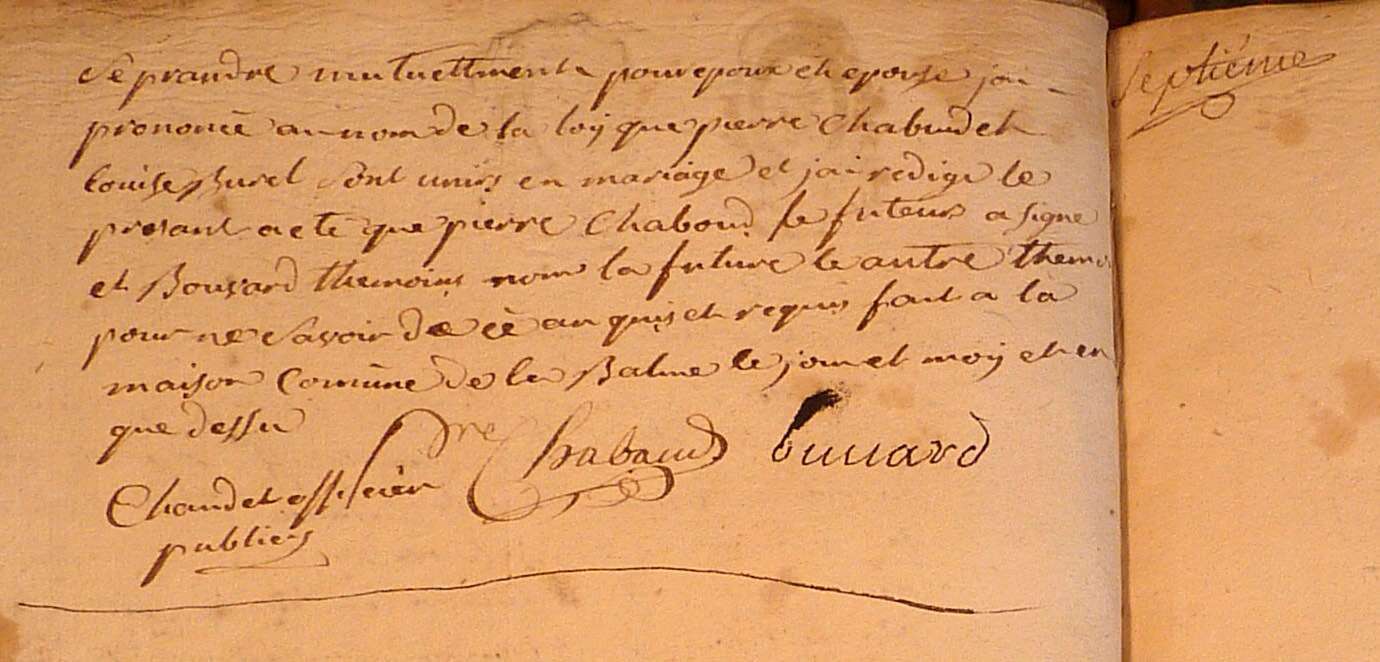 se prandre mutuellment pour epoux et epouse jai
prononcé au nom de la loy que pierre Chaboud et
louise Burel sont unirs en mariage et jai redige le
presant acte que pierre Chaboud le futeur a signe
et Bouvard themoins nom la future le autre themo
pour ne savoir de cè anquis et requis fait a la
maison Comune de la Balme le jour et moy et en
que dessu
Pre Chaboud bouvard
Chaudet officièr
publics
Septiéme